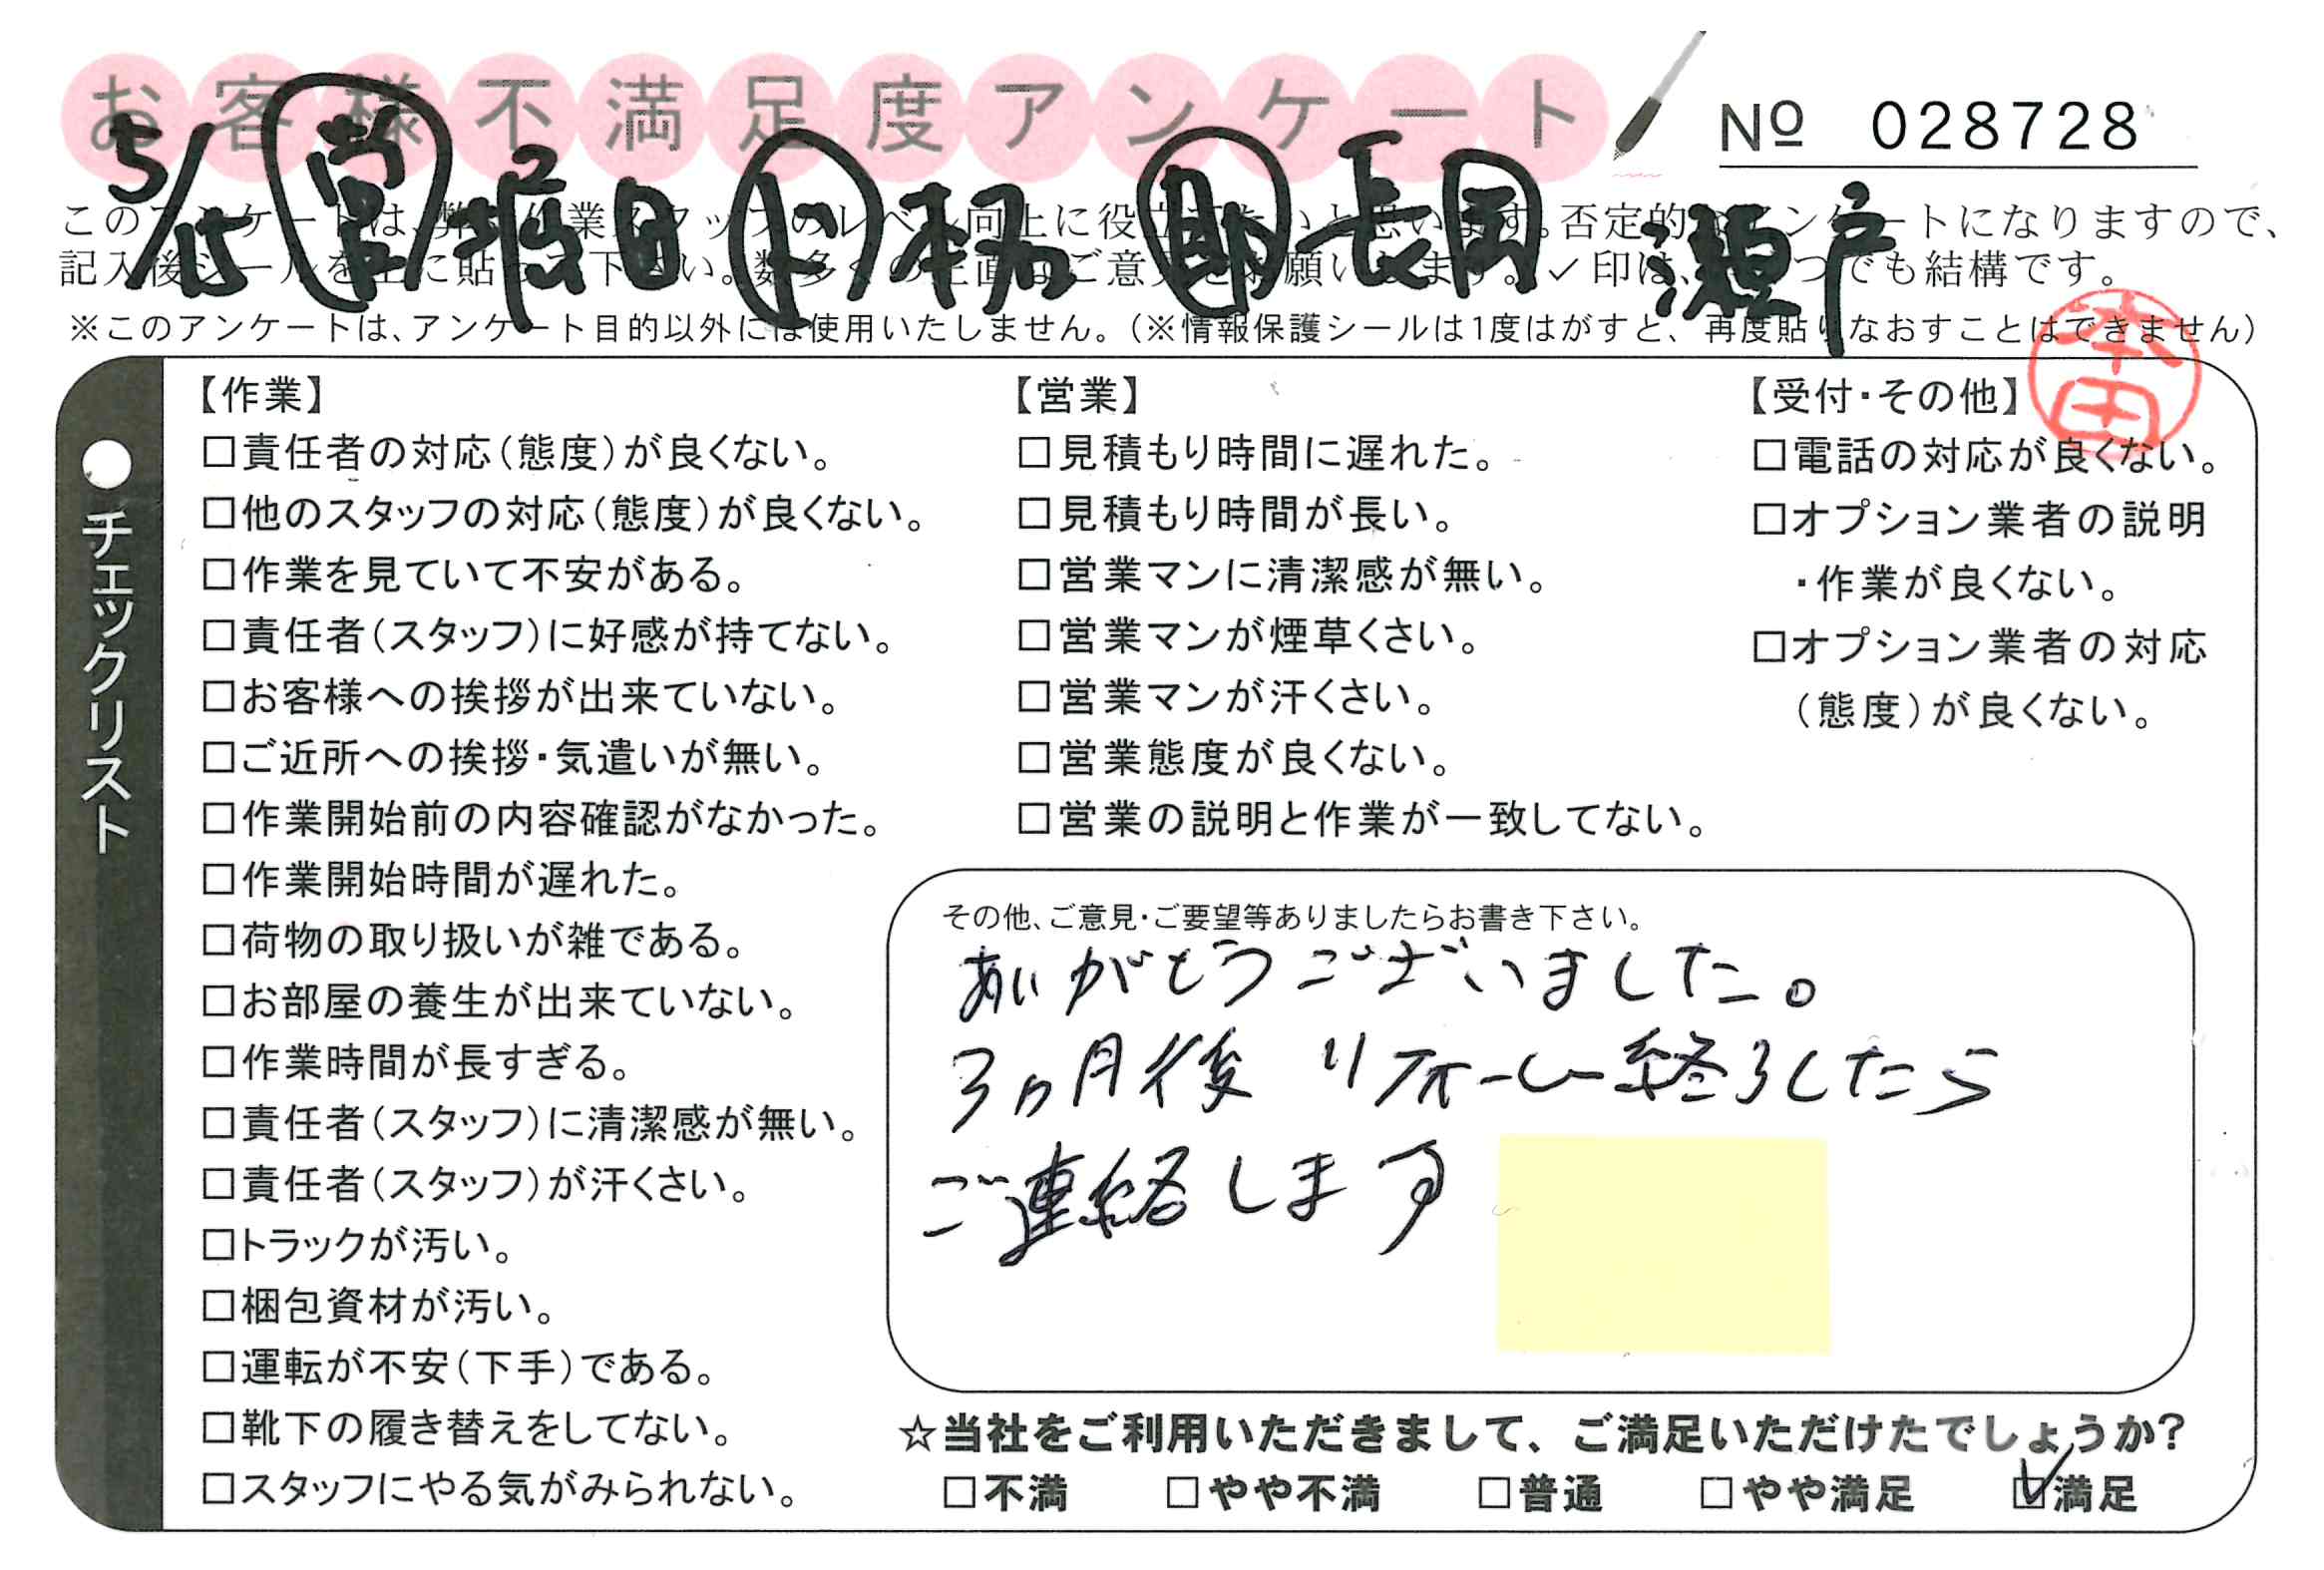 お客様不満足度アンケート
№ 028728
5/15 営 堀田 ト 本杨 助 長岡 瀬戸
このアンケートは、弊社作業スタッフのレベル向上に役立てたいと思います。否定的なアンケートになりますので、
記入後シールを上に貼って下さい。数多くの正直なご意見をお願いします。✓印は、いくつでも結構です。
※このアンケートは、アンケート目的以外には使用いたしません。（※情報保護シールは1度はがすと、再度貼りなおすことはできません）
本田
●チェックリスト
【作業】
□責任者の対応（態度）が良くない。
□他のスタッフの対応（態度）が良くない。
□作業を見ていて不安がある。
□責任者（スタッフ）に好感が持てない。
□お客様への挨拶が出来ていない。
□ご近所への挨拶・気遣いが無い。
□作業開始前の内容確認がなかった。
□作業開始時間が遅れた。
□荷物の取り扱いが雑である。
□お部屋の養生が出来ていない。
□作業時間が長すぎる。
□責任者（スタッフ）に清潔感が無い。
□責任者（スタッフ）が汗くさい。
□トラックが汚い。
□梱包資材が汚い。
□運転が不安（下手）である。
□靴下の履き替えをしてない。
□スタッフにやる気がみられない。
【営業】
□見積もり時間に遅れた。
□見積もり時間が長い。
□営業マンに清潔感が無い。
□営業マンが煙草くさい。
□営業マンが汗くさい。
□営業態度が良くない。
□営業の説明と作業が一致してない。
【受付・その他】
□電話の対応が良くない。
□オプション業者の説明
・作業が良くない。
□オプション業者の対応
（態度）が良くない。
その他、ご意見・ご要望等ありましたらお書き下さい。
ありがとうございました。
3ヵ月後 リフォーム終了したら
ご連絡します
☆当社をご利用いただきまして、ご満足いただけたでしょうか？
□不満 □やや不満 □普通 □やや満足 ☑満足